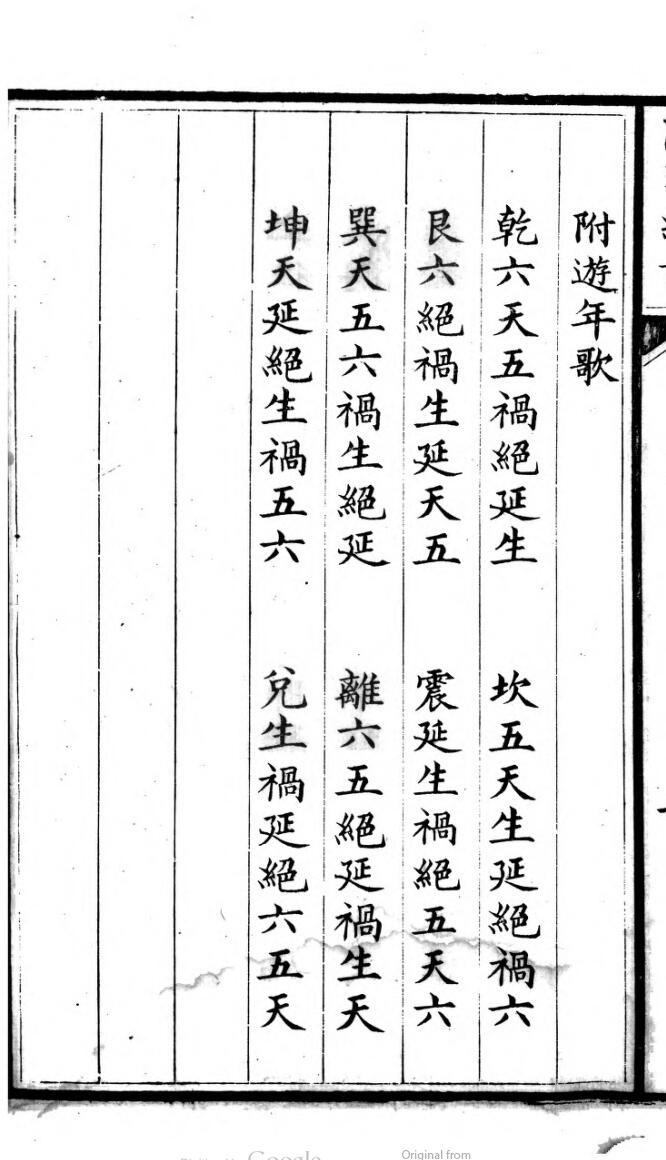 附遊年歌
乾六天五禍絕延生　坎五天生延絕禍六
艮六絕禍生延天五　震延生禍絕五天六
巽天五六禍生絕延　離六五絕延禍生天
坤天延絕生禍五六　兌生禍延絕六五天
Google
Original from